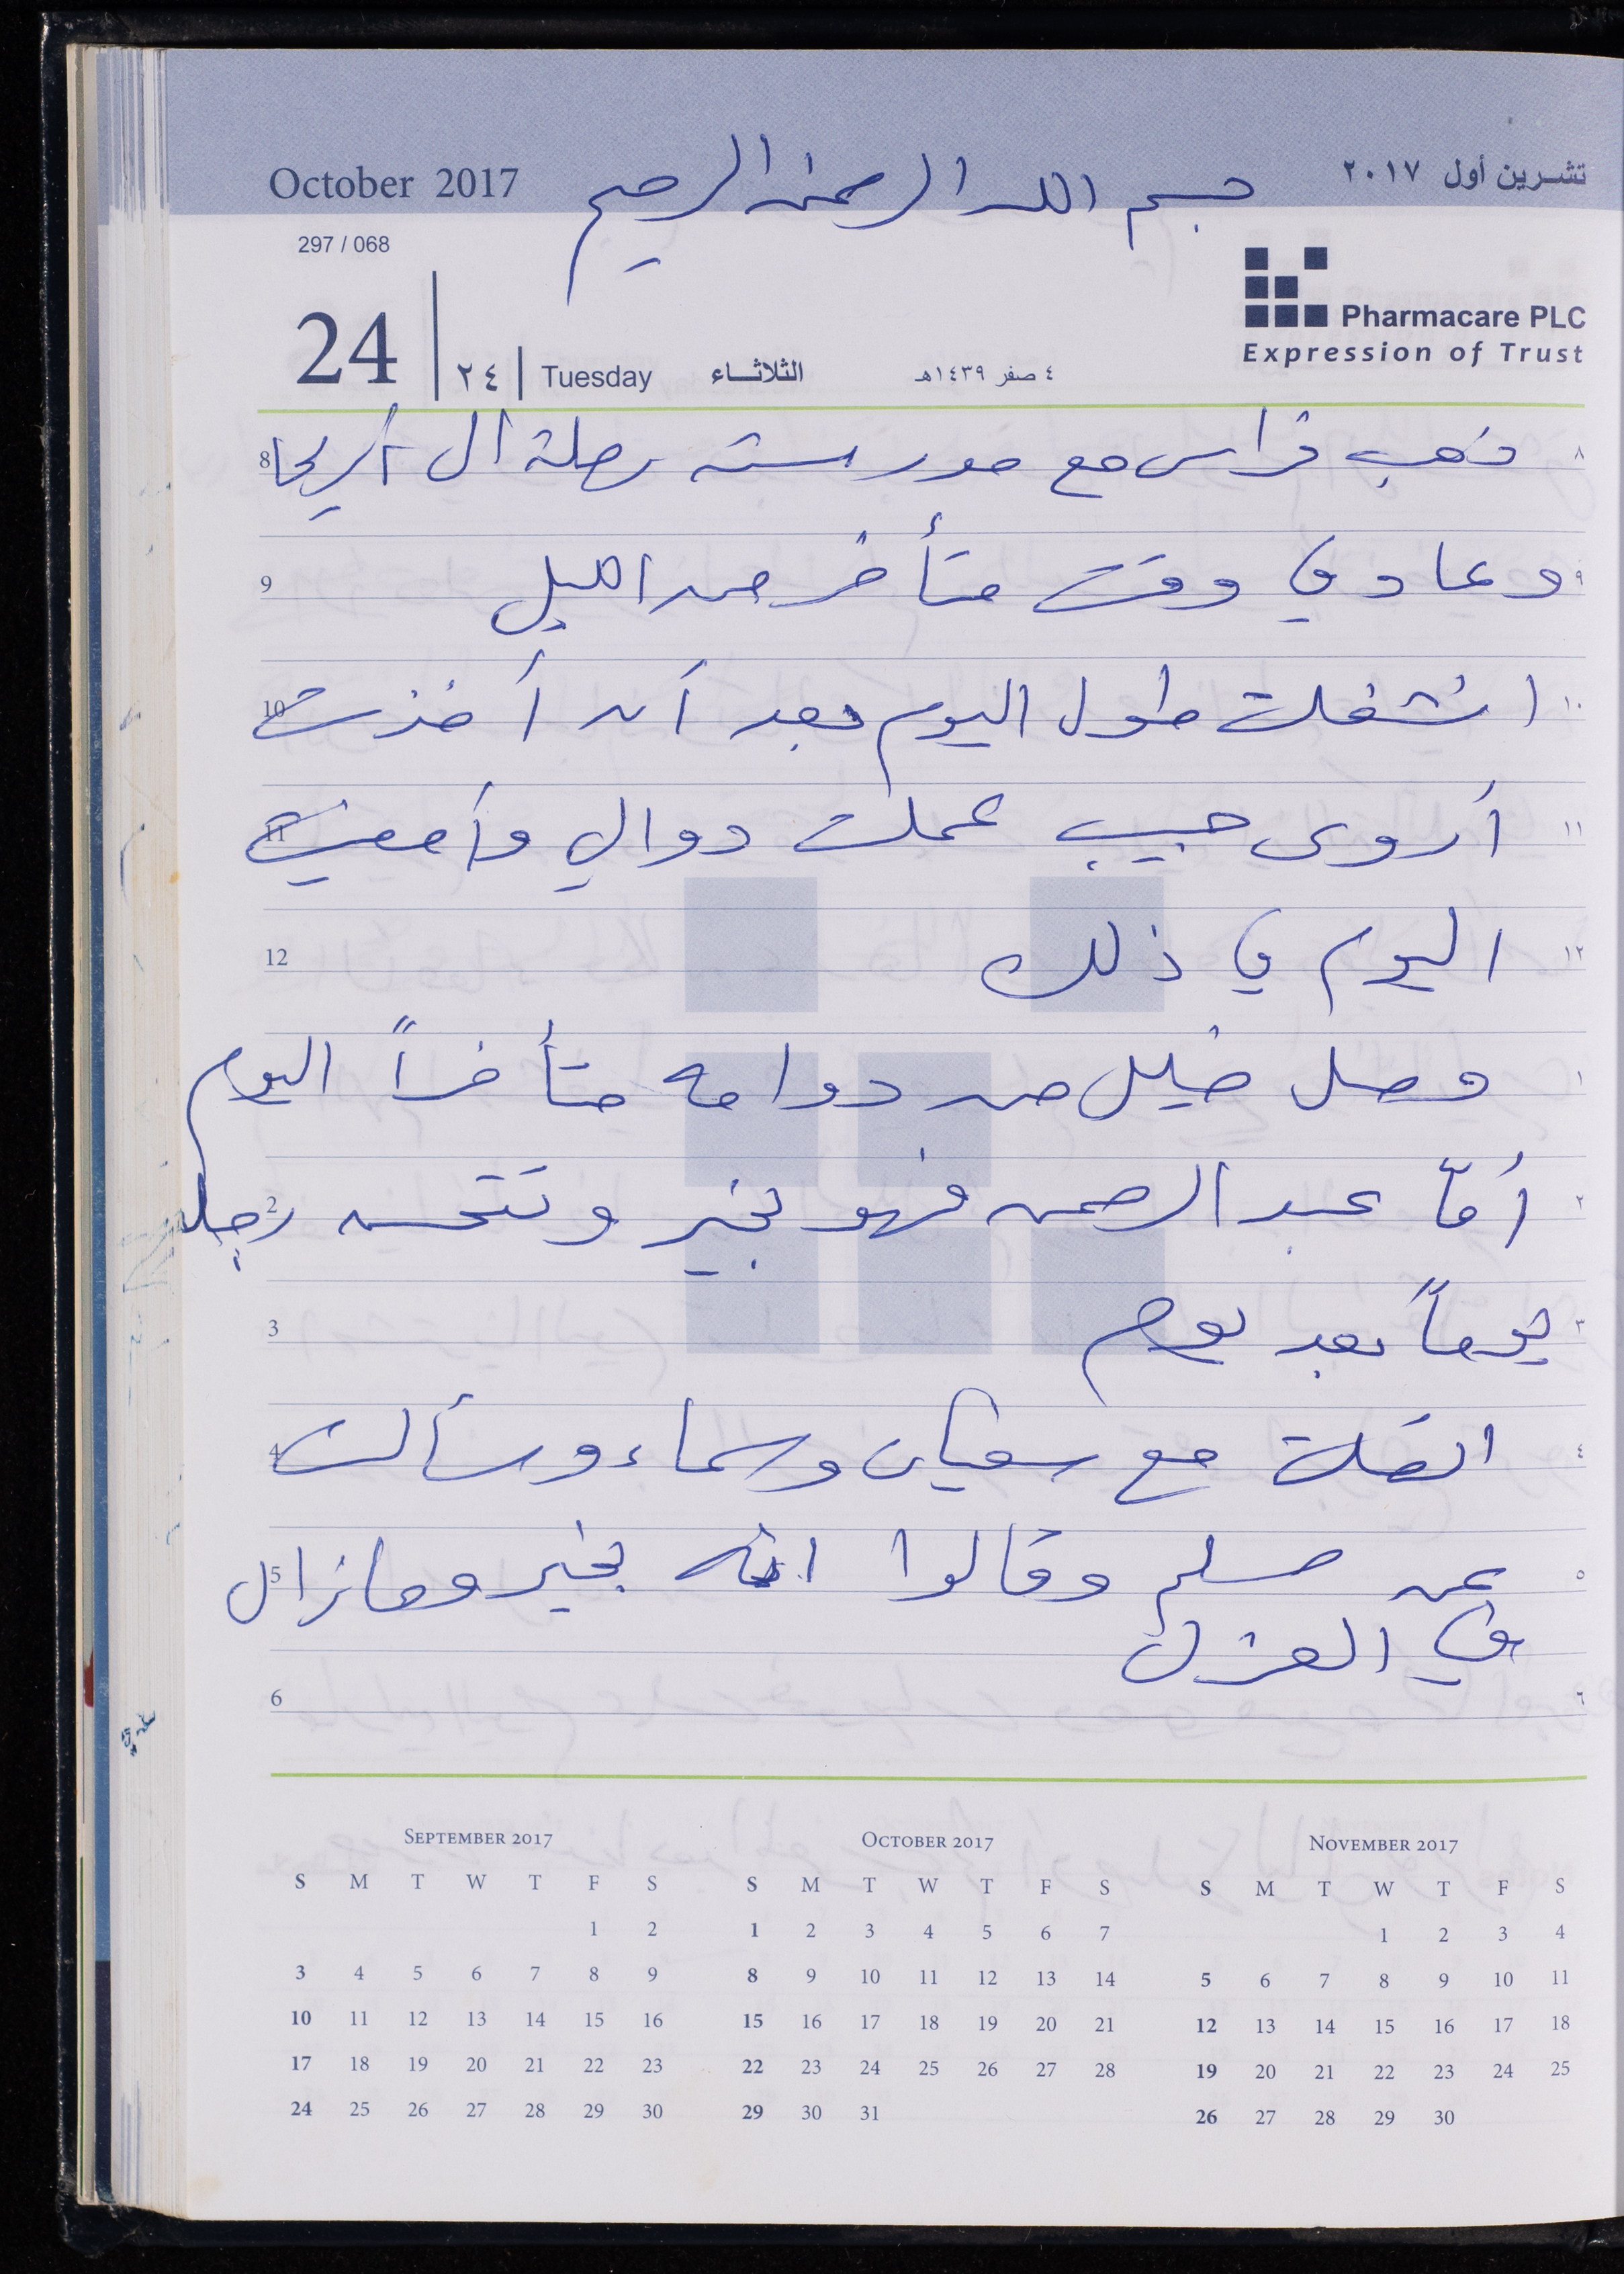 October 2017 بسم الله الرحمن الرحيم تشرين أول ٢٠١٧
297 / 068
Pharmacare PLC
Expression of Trust
24 ٢٤ Tuesday الثلاثاء ٤ صفر ١٤٣٩هـ
8 ذهب فراس مع مدرسته رحلة الى أريحا ٨
9 وعاد في وقت متأخر من الليل ٩
10 انشغلت طول اليوم بعد أن أخذت ١٠
11 أروى حبيب عملت دوالي وأمضيت ١١
12 اليوم في ذلك ١٢
وصل خليل من دوامه متأخراً اليوم ١
2 أمّا عبد الرحمن فهو بخير وتتحسن رجله ٢
3 يوماً بعد يوم ٣
4 اتصلت مع سفيان وسماء وسألت ٤
5 عن مسلم وقالوا انه بخير وما زال ٥
في العزل
6 ٦
SEPTEMBER 2017 OCTOBER 2017 NOVEMBER 2017
S M T W T F S S M T W T F S S M T W T F S
1 2 1 2 3 4 5 6 7 1 2 3 4
3 4 5 6 7 8 9 8 9 10 11 12 13 14 5 6 7 8 9 10 11
10 11 12 13 14 15 16 15 16 17 18 19 20 21 12 13 14 15 16 17 18
17 18 19 20 21 22 23 22 23 24 25 26 27 28 19 20 21 22 23 24 25
24 25 26 27 28 29 30 29 30 31 26 27 28 29 30